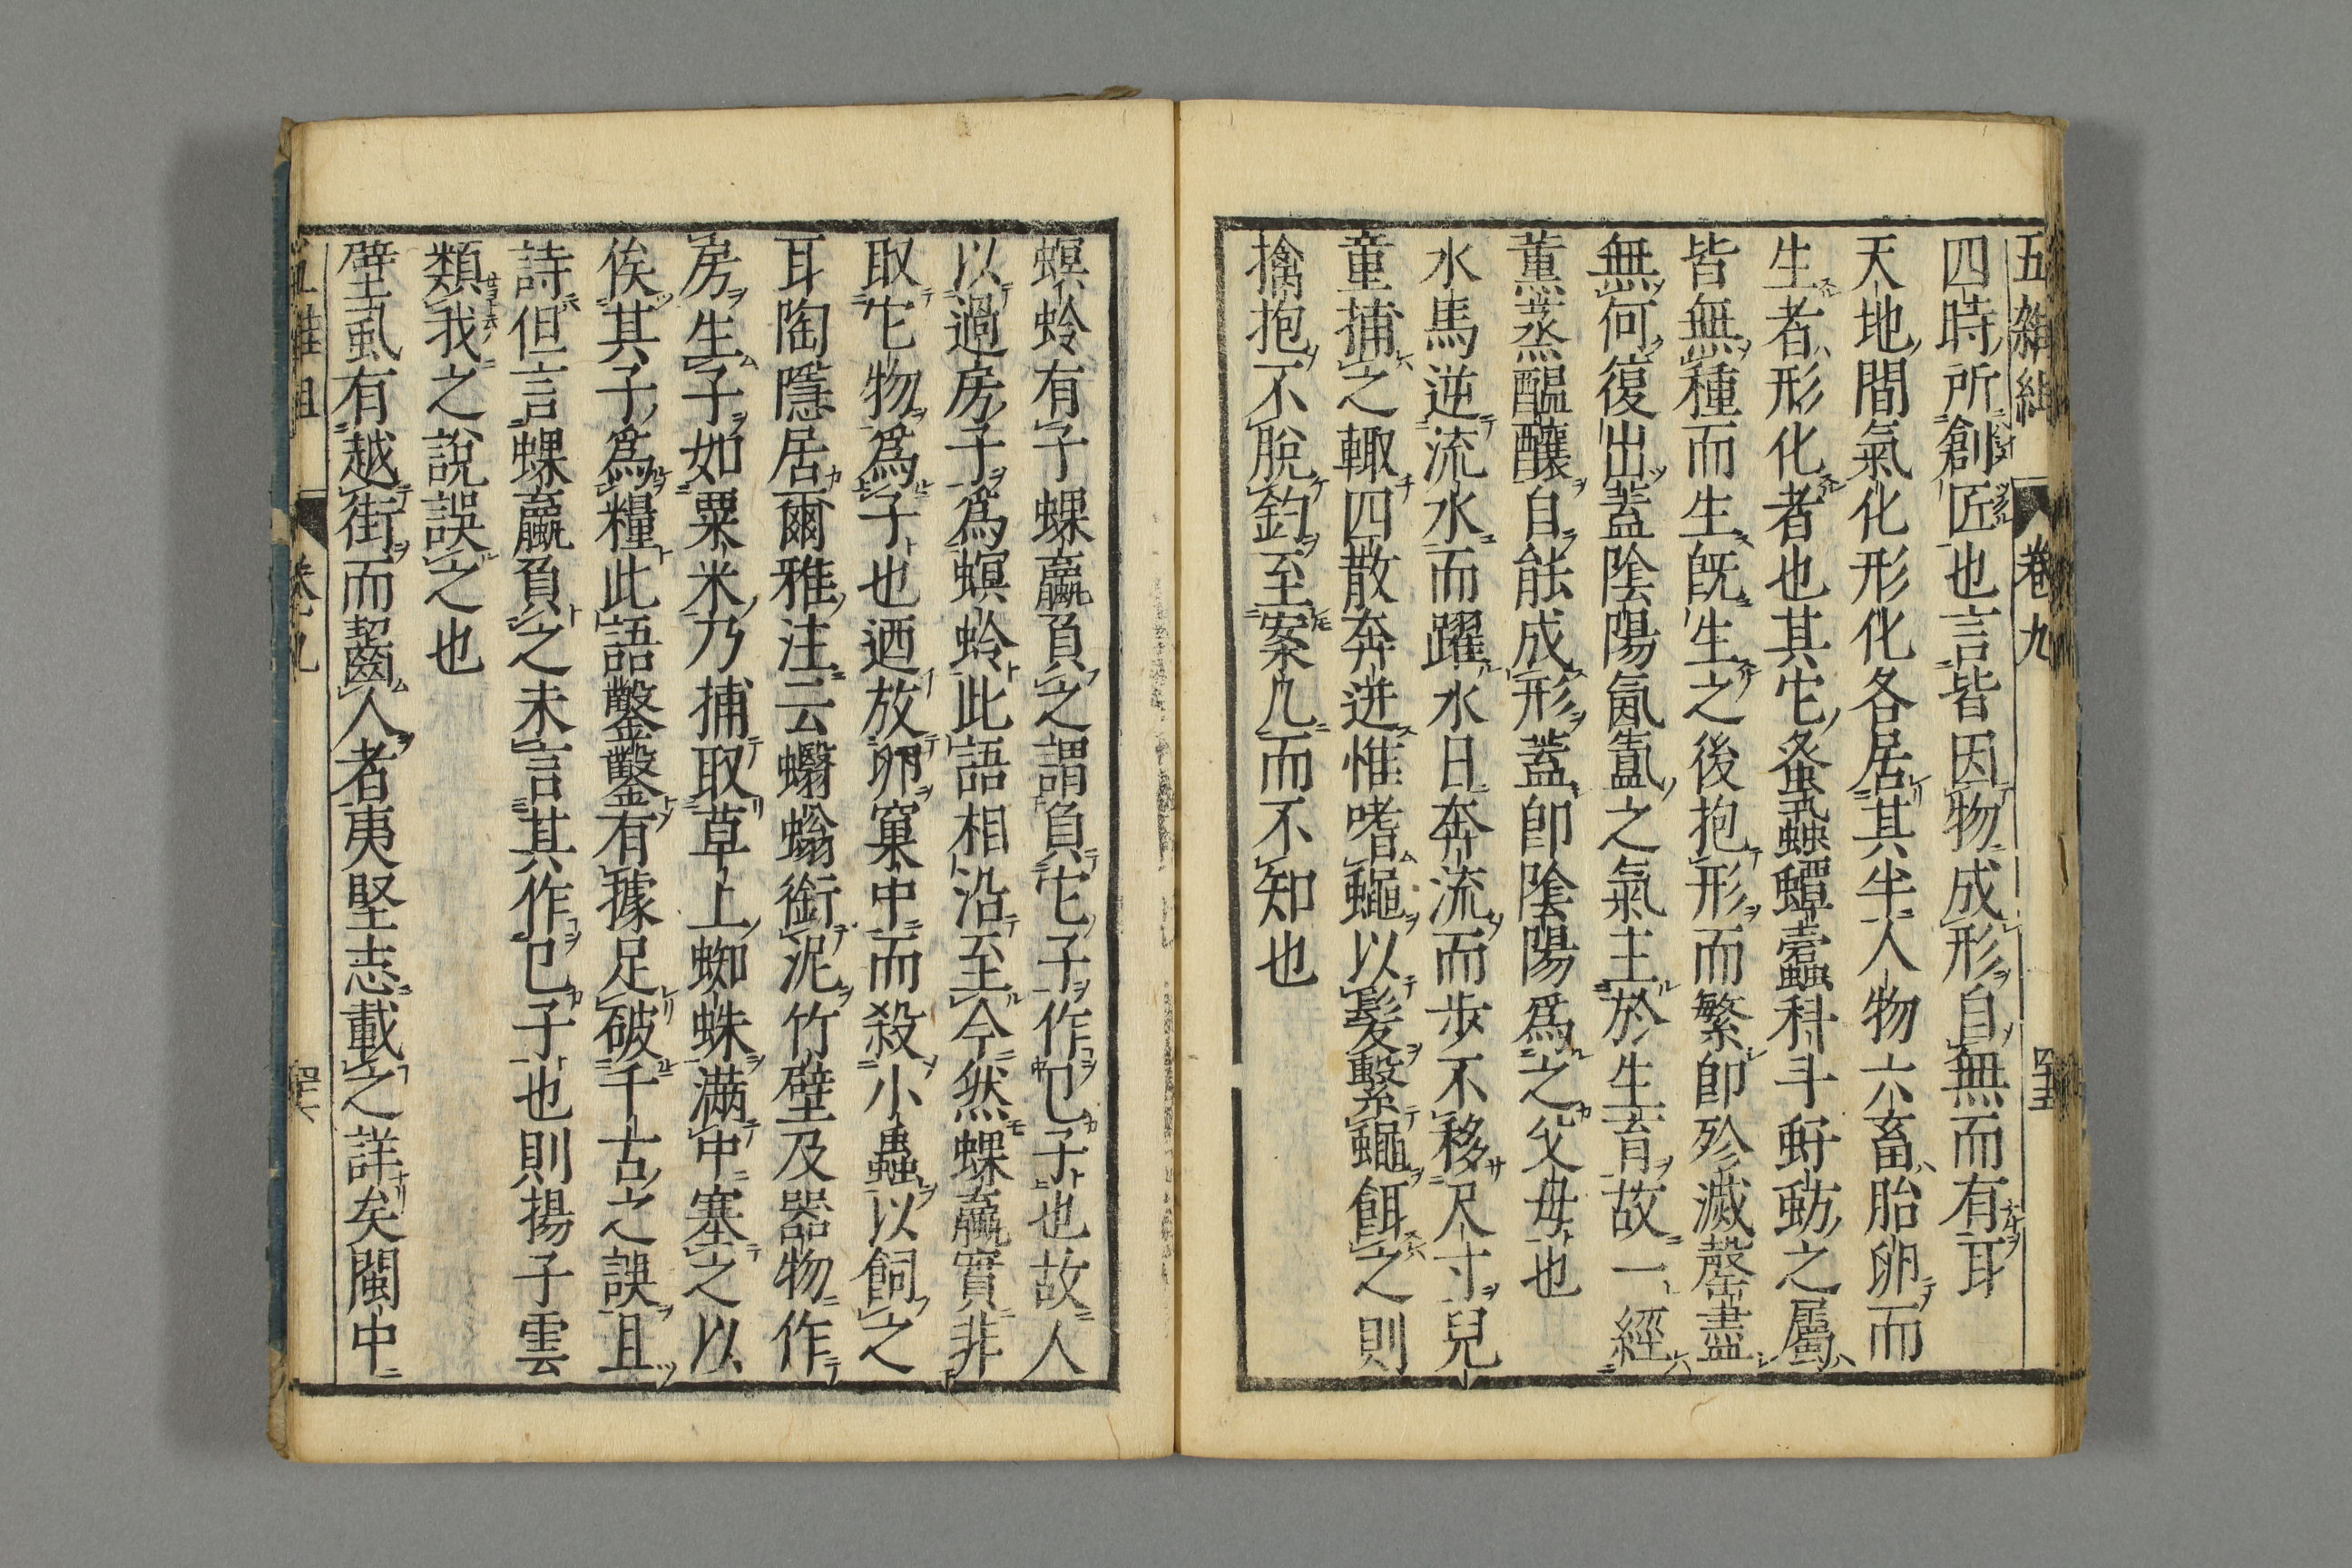 五雜組 卷九 四十五
四時所創匠也言皆因物成形自無而有耳
天地間氣化形化各居其半人物六畜胎卵而
生者形化者也其它蚤蝨蟫蠹科斗虸動之屬
皆無種而生旣生之後抱形而繁卽殄滅罄盡
無何復出蓋陰陽氤氳之氣主於生育故一經
薰蒸醞釀自能成形蓋卽陰陽爲之父母也
水馬逆流水而躍水日奔流而步不移尺寸兒
童捕之輙四散奔迸惟嗜蠅以髮繫蠅餌之則
擒抱不脫釣至案几而不知也
螟蛉有子蜾蠃負之謂負它子作己子也故人
以過房子爲螟蛉此語相沿至今然蜾蠃實非
取它物爲子也迺放卵窠中而殺小蟲以飼之
耳陶隱居爾雅注云蠮螉銜泥竹壁及器物作
房生子如粟米乃捕取草上蜘蛛滿中塞之以
俟其子爲糧此語鑿鑿有據足破千古之誤且
詩但言蜾蠃負之未言其作己子也則揚子雲
類我之說誤之也
壁虱有越街而齧人者夷堅志載之詳矣閩中